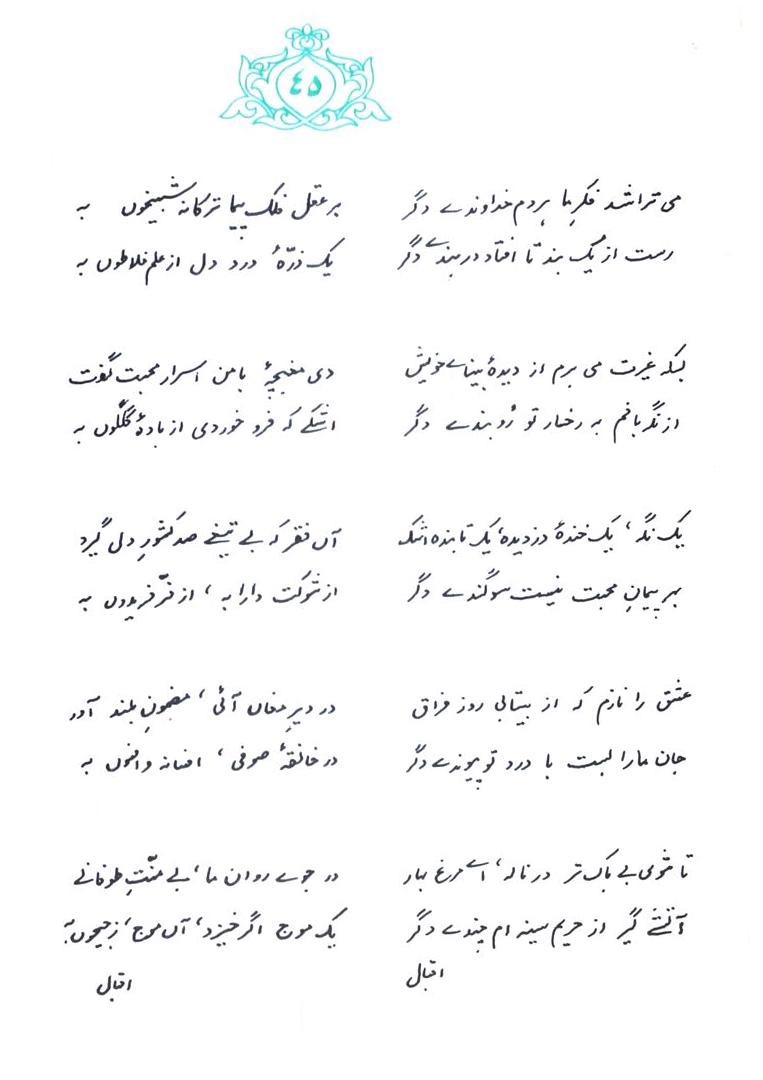 ٤٥
می تراشد فکرِ ما ہر دم خداوندے دگر
رست از یک بند تا افتاد در بندے دگر
بسکہ غیرت می برم از دیدۂ بیناے خویش
از نگہ بافم به رخسارِ تو رُو بندے دگر
یک نگہ، یک خندۂ دزدیده، یک تابنده اشک
بہرِ پیمانِ محبت نیست سوگندے دگر
عشق را نازم که از بیتابی روز فراق
جان ما را بست با درد تو پیوندے دگر
تا شوی بی باک تر در ناله، اے مرغ بہار
آتشے گیر از حریم سینه ام چندے دگر
اقبال
بر عقل فلک پیما ترکانه شبیخون به
یک ذرّۂ درد دل از علم فلاطون به
دی مغبچۂ با من اسرار محبت گفت
اشکے که فرو خوردی از بادۂ گلگون به
آں فقر که بے تیغے صد کشورِ دل گیرد
از شوکت دارا به، از فرِّ فریدون به
در دیرِ مغاں آئی، مضمونِ بلند آور
در خانقۂ صوفی، افسانه و افسون به
در جوے روان ما، بے منّتِ طوفانے
یک موج اگر خیزد، آں موج، ز جیحون به
اقبال